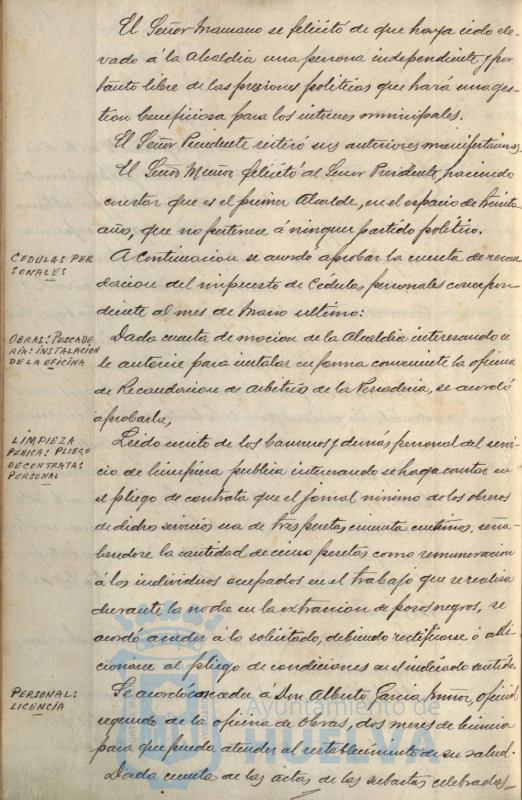 El Señor Mamano se felicitó de que haya sido ele-
vado á la Alcaldia una persona independiente y por
tanto libre de las presiones politicas que hará una ges-
tion beneficiosa para los intereses municipales.
El Señor Presidente reiteró sus anteriores manifestaciones.
El Señor Muñoz felicitó al Señor Presidente, haciendo
constar que es el primer Alcalde, en el espacio de treinta
años, que no pertenece á ningun partido politico.
CEDULAS PER
SONALES
A continuacion se acordó aprobar la cuenta de recau
dacion del impuesto de Cedulas personales correspon-
diente al mes de Marzo ultimo:
OBRAS: PESCADE
RÍA: INSTALACION
DE LA OFICINA
Dada cuenta de mocion de la Alcaldia interesando se
le autorice para instalar en forma conveniente la oficina
de Recaudacion de Arbitrios de la Pescaderia, se acordó
aprobarla,
LIMPIEZA
PÚBICA: PLIEGO
DE CONTRATA:
PERSONAL
Leido escrito de los barrenderos y demás personal del servi-
cio de limpieza publica interesando se haga constar en
el pliego de contrata que el jornal minimo de los obreros
de dicho servicio sea de tres pesetas cincuenta centimos, seña-
landose la cantidad de cinco pesetas como remuneracion
á los individuos ocupados en el trabajo que se realiza
durante la noche en la extraccion de pozos negros, se
acordó acceder á lo solicitado, debiendo rectificarse ó adi-
cionarse al pliego de condiciones en el indicado sentido.
PERSONAL:
LICENCIA
Se acordó conceder á Don Alberto Garcia Muñoz, oficial
segundo de la oficina de Obras, dos meses de licencia
para que pueda atender al restablecimiento de su salud.
Dada cuenta de las actas de las subastas celebradas
Ayuntamiento de
HUELVA